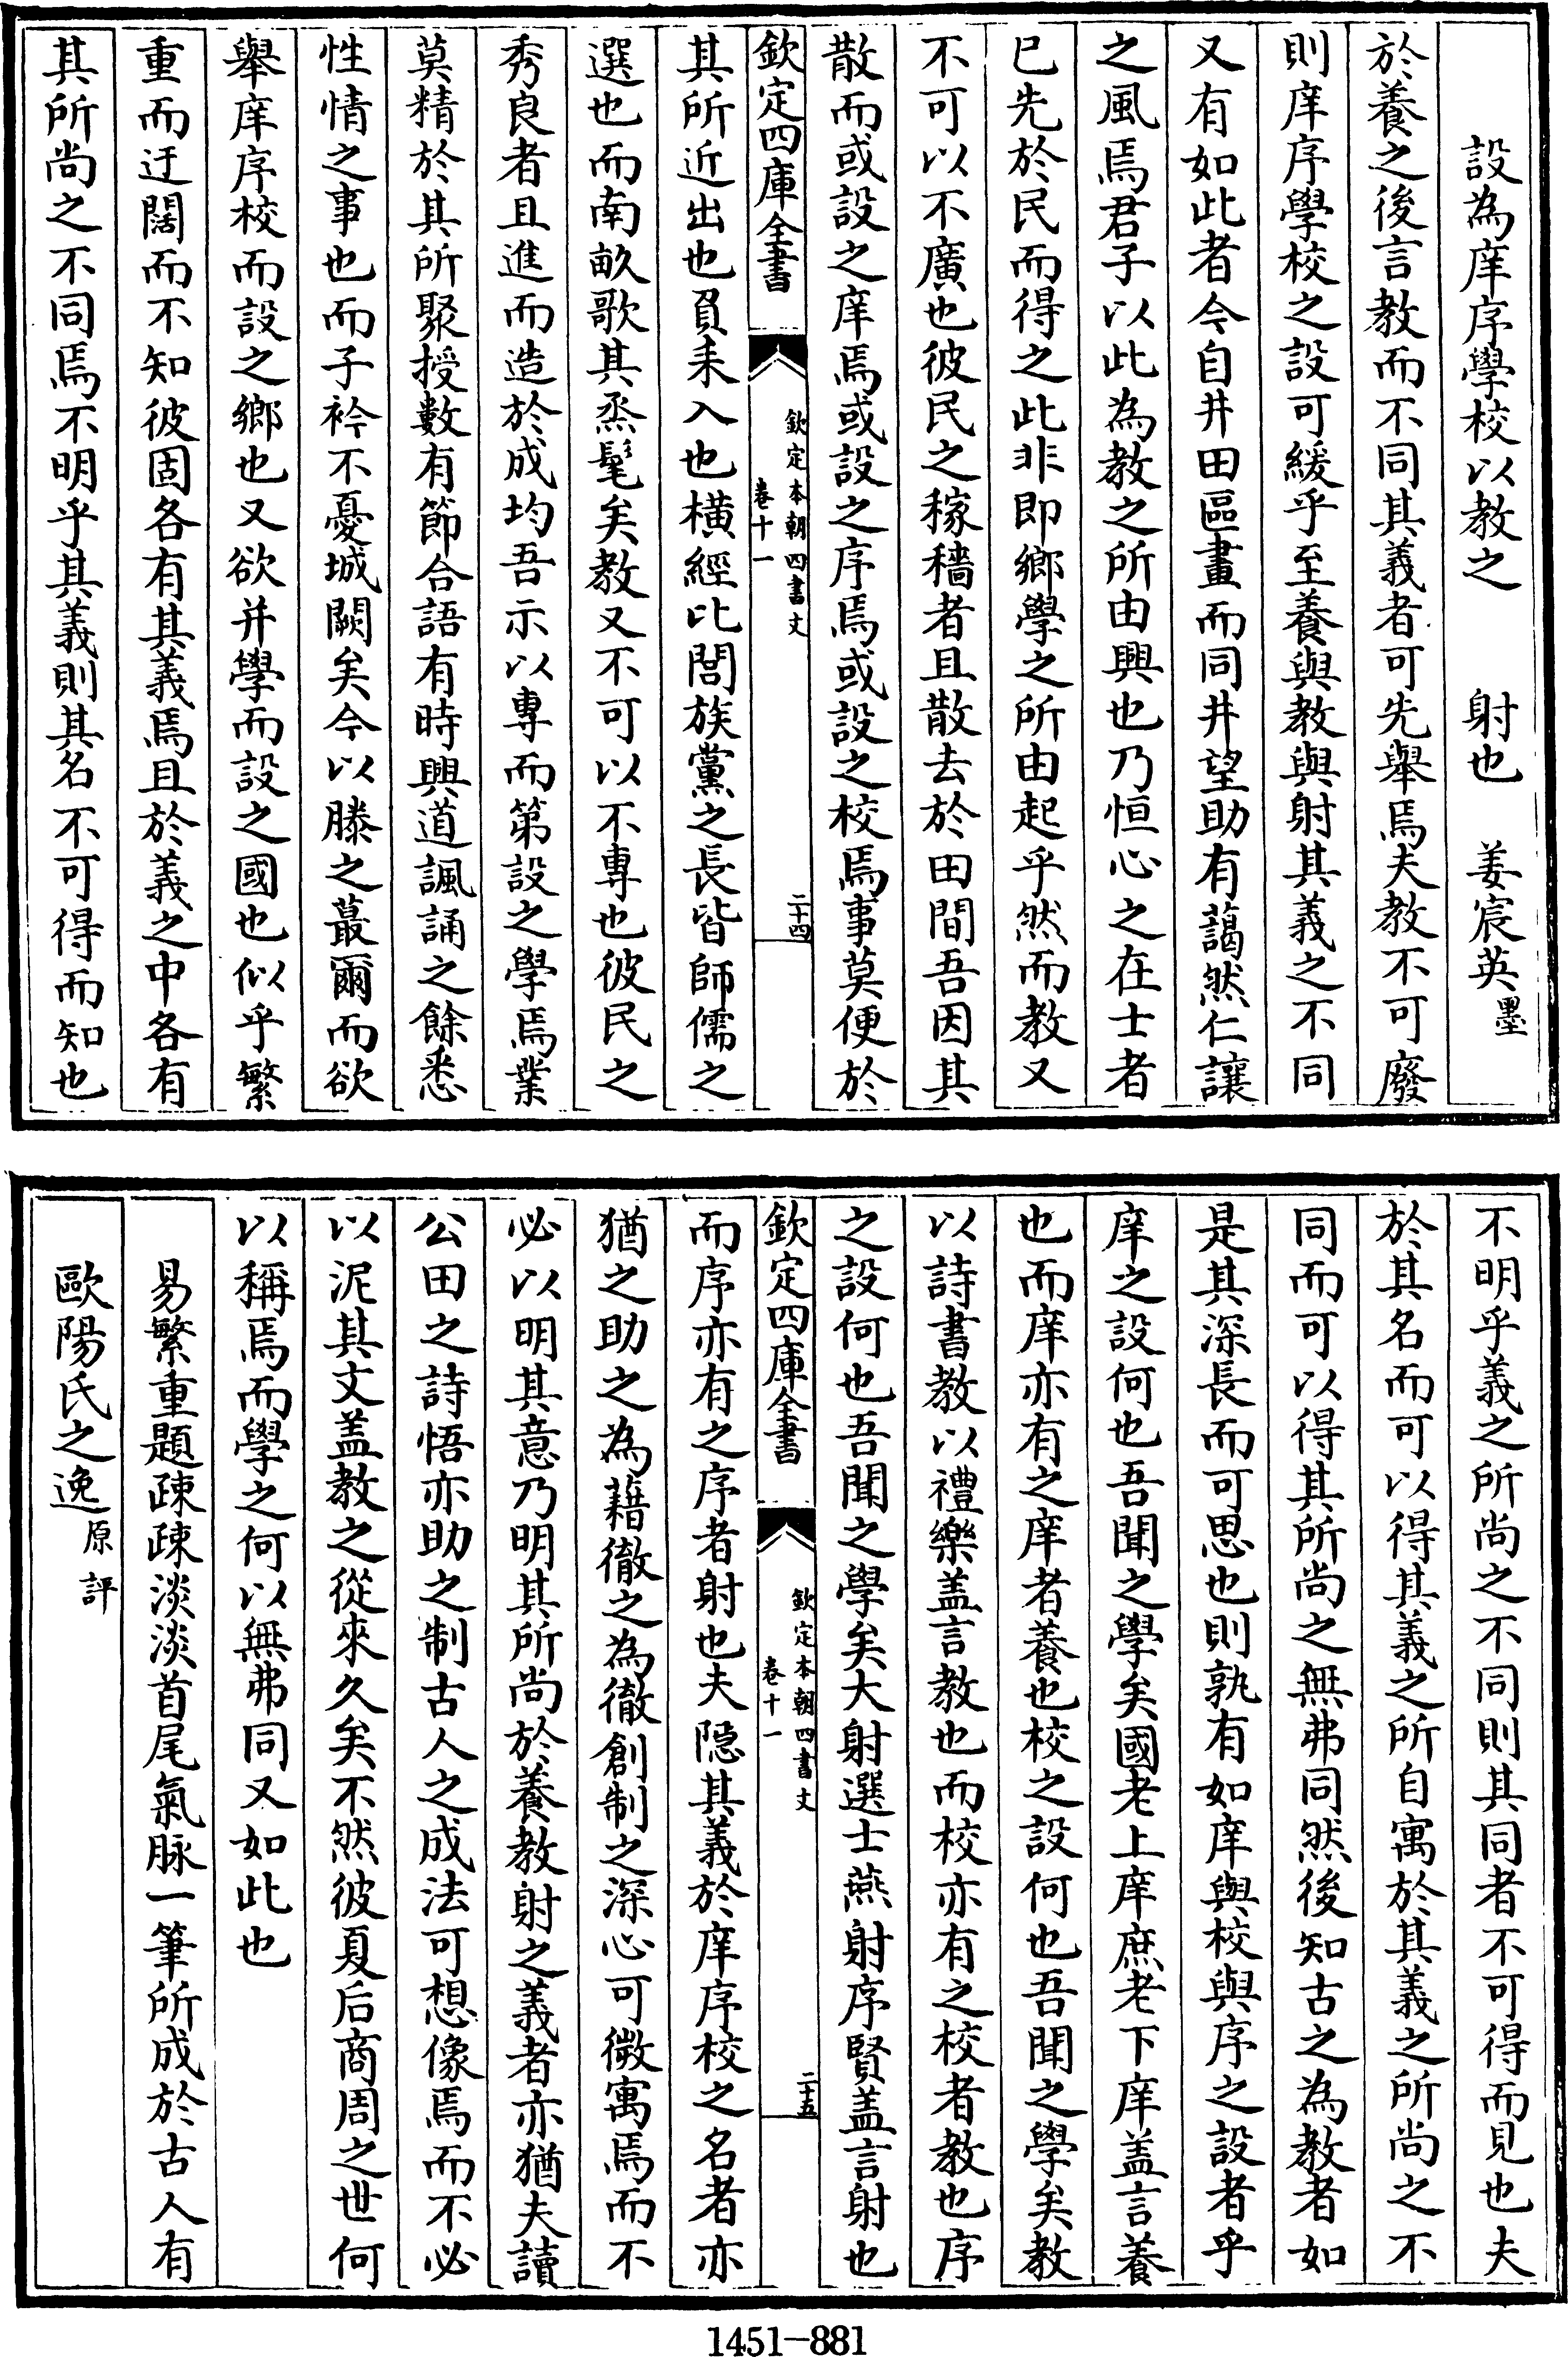 設為庠序學校以教之　射也　姜宸英墨
於養之後言教而不同其義者可先舉焉夫教不可廢
則庠序學校之設可緩乎至養與教與射其義之不同
又有如此者今自井田區畫而同井望助有藹然仁讓
之風焉君子以此為教之所由興也乃恒心之在士者
已先於民而得之此非即鄉學之所由起乎然而教又
不可以不廣也彼民之稼穡者且散去於田間吾因其
散而或設之庠焉或設之序焉或設之校焉事莫便於
欽定四庫全書
欽定本朝四書文
卷十一
二十四
其所近出也負耒入也橫經比閭族黨之長皆師儒之
選也而南畝歌其烝髦矣教又不可以不專也彼民之
秀良者且進而造於成均吾示以專而第設之學焉業
莫精於其所聚授數有節合語有時興道諷誦之餘悉
性情之事也而子衿不憂城闕矣今以滕之蕞爾而欲
舉庠序校而設之鄉也又欲并學而設之國也似乎繁
重而迂闊而不知彼固各有其義焉且於義之中各有
其所尚之不同焉不明乎其義則其名不可得而知也
不明乎義之所尚之不同則其同者不可得而見也夫
於其名而可以得其義之所自寓於其義之所尚之不
同而可以得其所尚之無弗同然後知古之為教者如
是其深長而可思也則孰有如庠與校與序之設者乎
庠之設何也吾聞之學矣國老上庠庶老下庠盖言養
也而庠亦有之庠者養也校之設何也吾聞之學矣教
以詩書教以禮樂盖言教也而校亦有之校者教也序
之設何也吾聞之學矣大射選士燕射序賢盖言射也
欽定四庫全書
欽定本朝四書文
卷十一
二十五
而序亦有之序者射也夫隱其義於庠序校之名者亦
猶之助之為藉徹之為徹創制之深心可微寓焉而不
必以明其意乃明其所尚於養教射之義者亦猶夫讀
公田之詩悟亦助之制古人之成法可想像焉而不必
以泥其文盖教之從來久矣不然彼夏后商周之世何
以稱焉而學之何以無弗同又如此也
易繁重題疎疎淡淡首尾氣脉一筆所成於古人有
歐陽氏之逸原評
1451-881